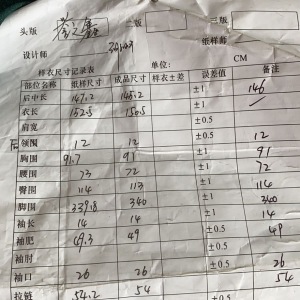 头版 二版 三版
设计师 纸样师
样衣尺寸记录表 单位: CM
部位名称 纸样尺寸 成品尺寸 样衣±差 误差值 备注
后中长 147.2 145.2 ±1 146
衣长 152.5 150.5 ±1
肩宽 ±0.5
后领围 12 12 ±0.5 12
胸围 91.7 91 ±1 91
腰围 73 72 ±1 72
臀围 114 113 ±1 114
脚围 339.8 340 ±1 340
袖长 14 14 ±1 14
袖肥 49.3 49 ±0.5 49
袖肘 ±0.5
袖口 26 26 ±0.5 26
拉链 54.2 54 ±0.5 54